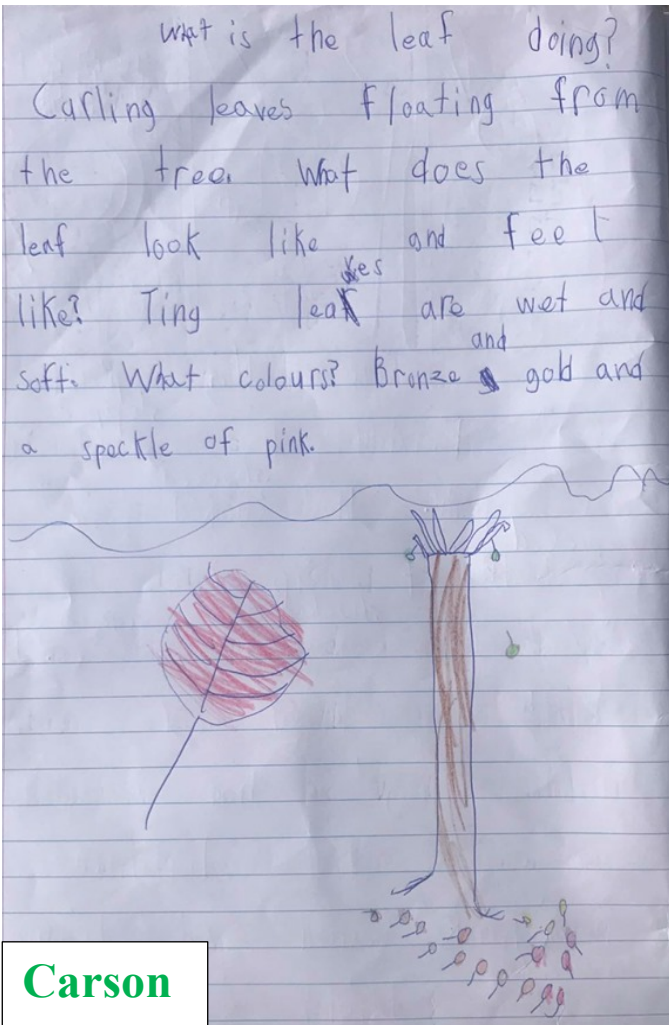 What is the leaf doing?
Curling leaves floating from
the tree. What does the
leaf look like and feel
like? Ting leaves are wet and
soft. What colours? Bronze and gold and
a speckle of pink.
Carson